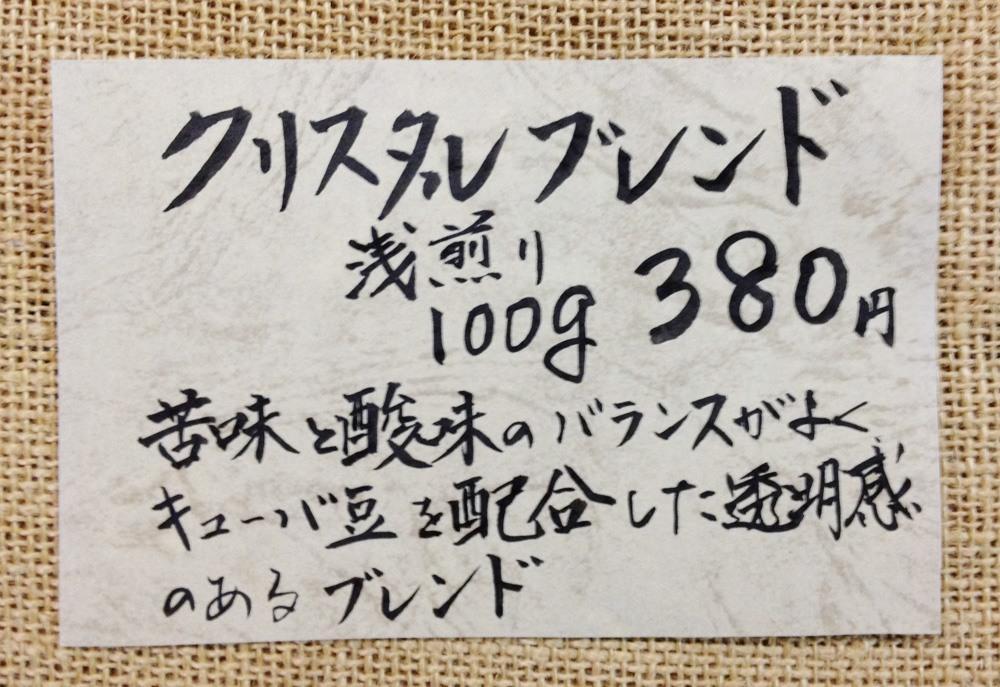 クリスタルブレンド
浅煎り
100g 380円
苦味と酸味のバランスがよく
キューバ豆を配合した透明感
のあるブレンド